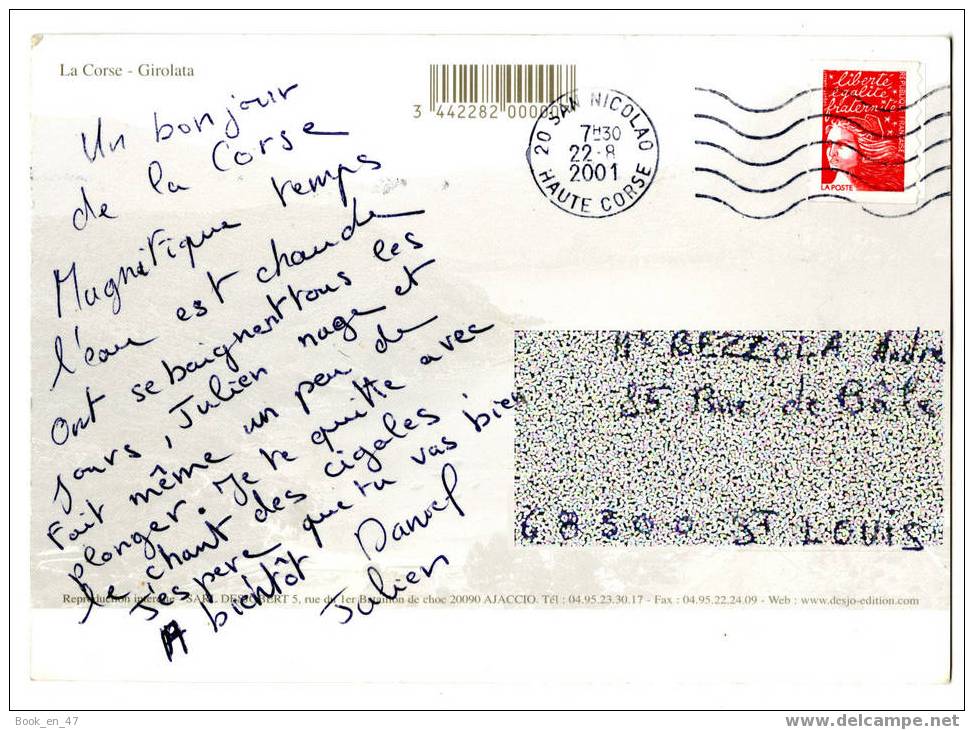 La Corse - Girolata
3 442282 00000
20 SAN NICOLAO
7H30
22-8
2001
HAUTE CORSE
liberté
égalité
fraternité
RÉPUBLIQUE FRANÇAISE
LA POSTE
Un bonjour
de la Corse
Magnifique temps
l'eau est chaude
Ont se baignent tous les
jours, Julien nage et
fait même un peu de
plonger. Je te quitte avec
le chant des cigales
J'espere que tu vas bien
A bientôt Daniel
Julien
BEZZOLA André
de Bâle
68300 ST LOUIS
Reproduction interdite - SARL DESJOBERT 5, rue du 1er Bataillon de choc 20090 AJACCIO. Tél : 04.95.23.30.17 - Fax : 04.95.22.24.09 - Web : www.desjo-edition.com
Book_en_47
www.delcampe.net